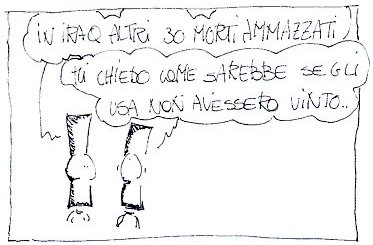 IN IRAQ ALTRI 30 MORTI AMMAZZATI
MI CHIEDO COME SAREBBE SE GLI
USA NON AVESSERO VINTO..